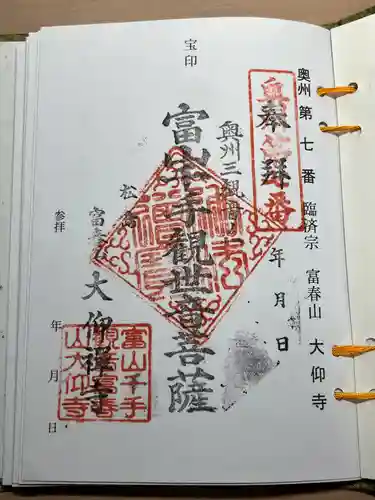 奥州第七番 臨済宗 富春山 大仰寺
奥州第七番
奉拝
年 月 日
奥州三観音
富山千手観世音菩薩
松島
富春山
大仰禅寺
富山千手
観音富春
山大仰寺
宝印
参拝 年 月 日